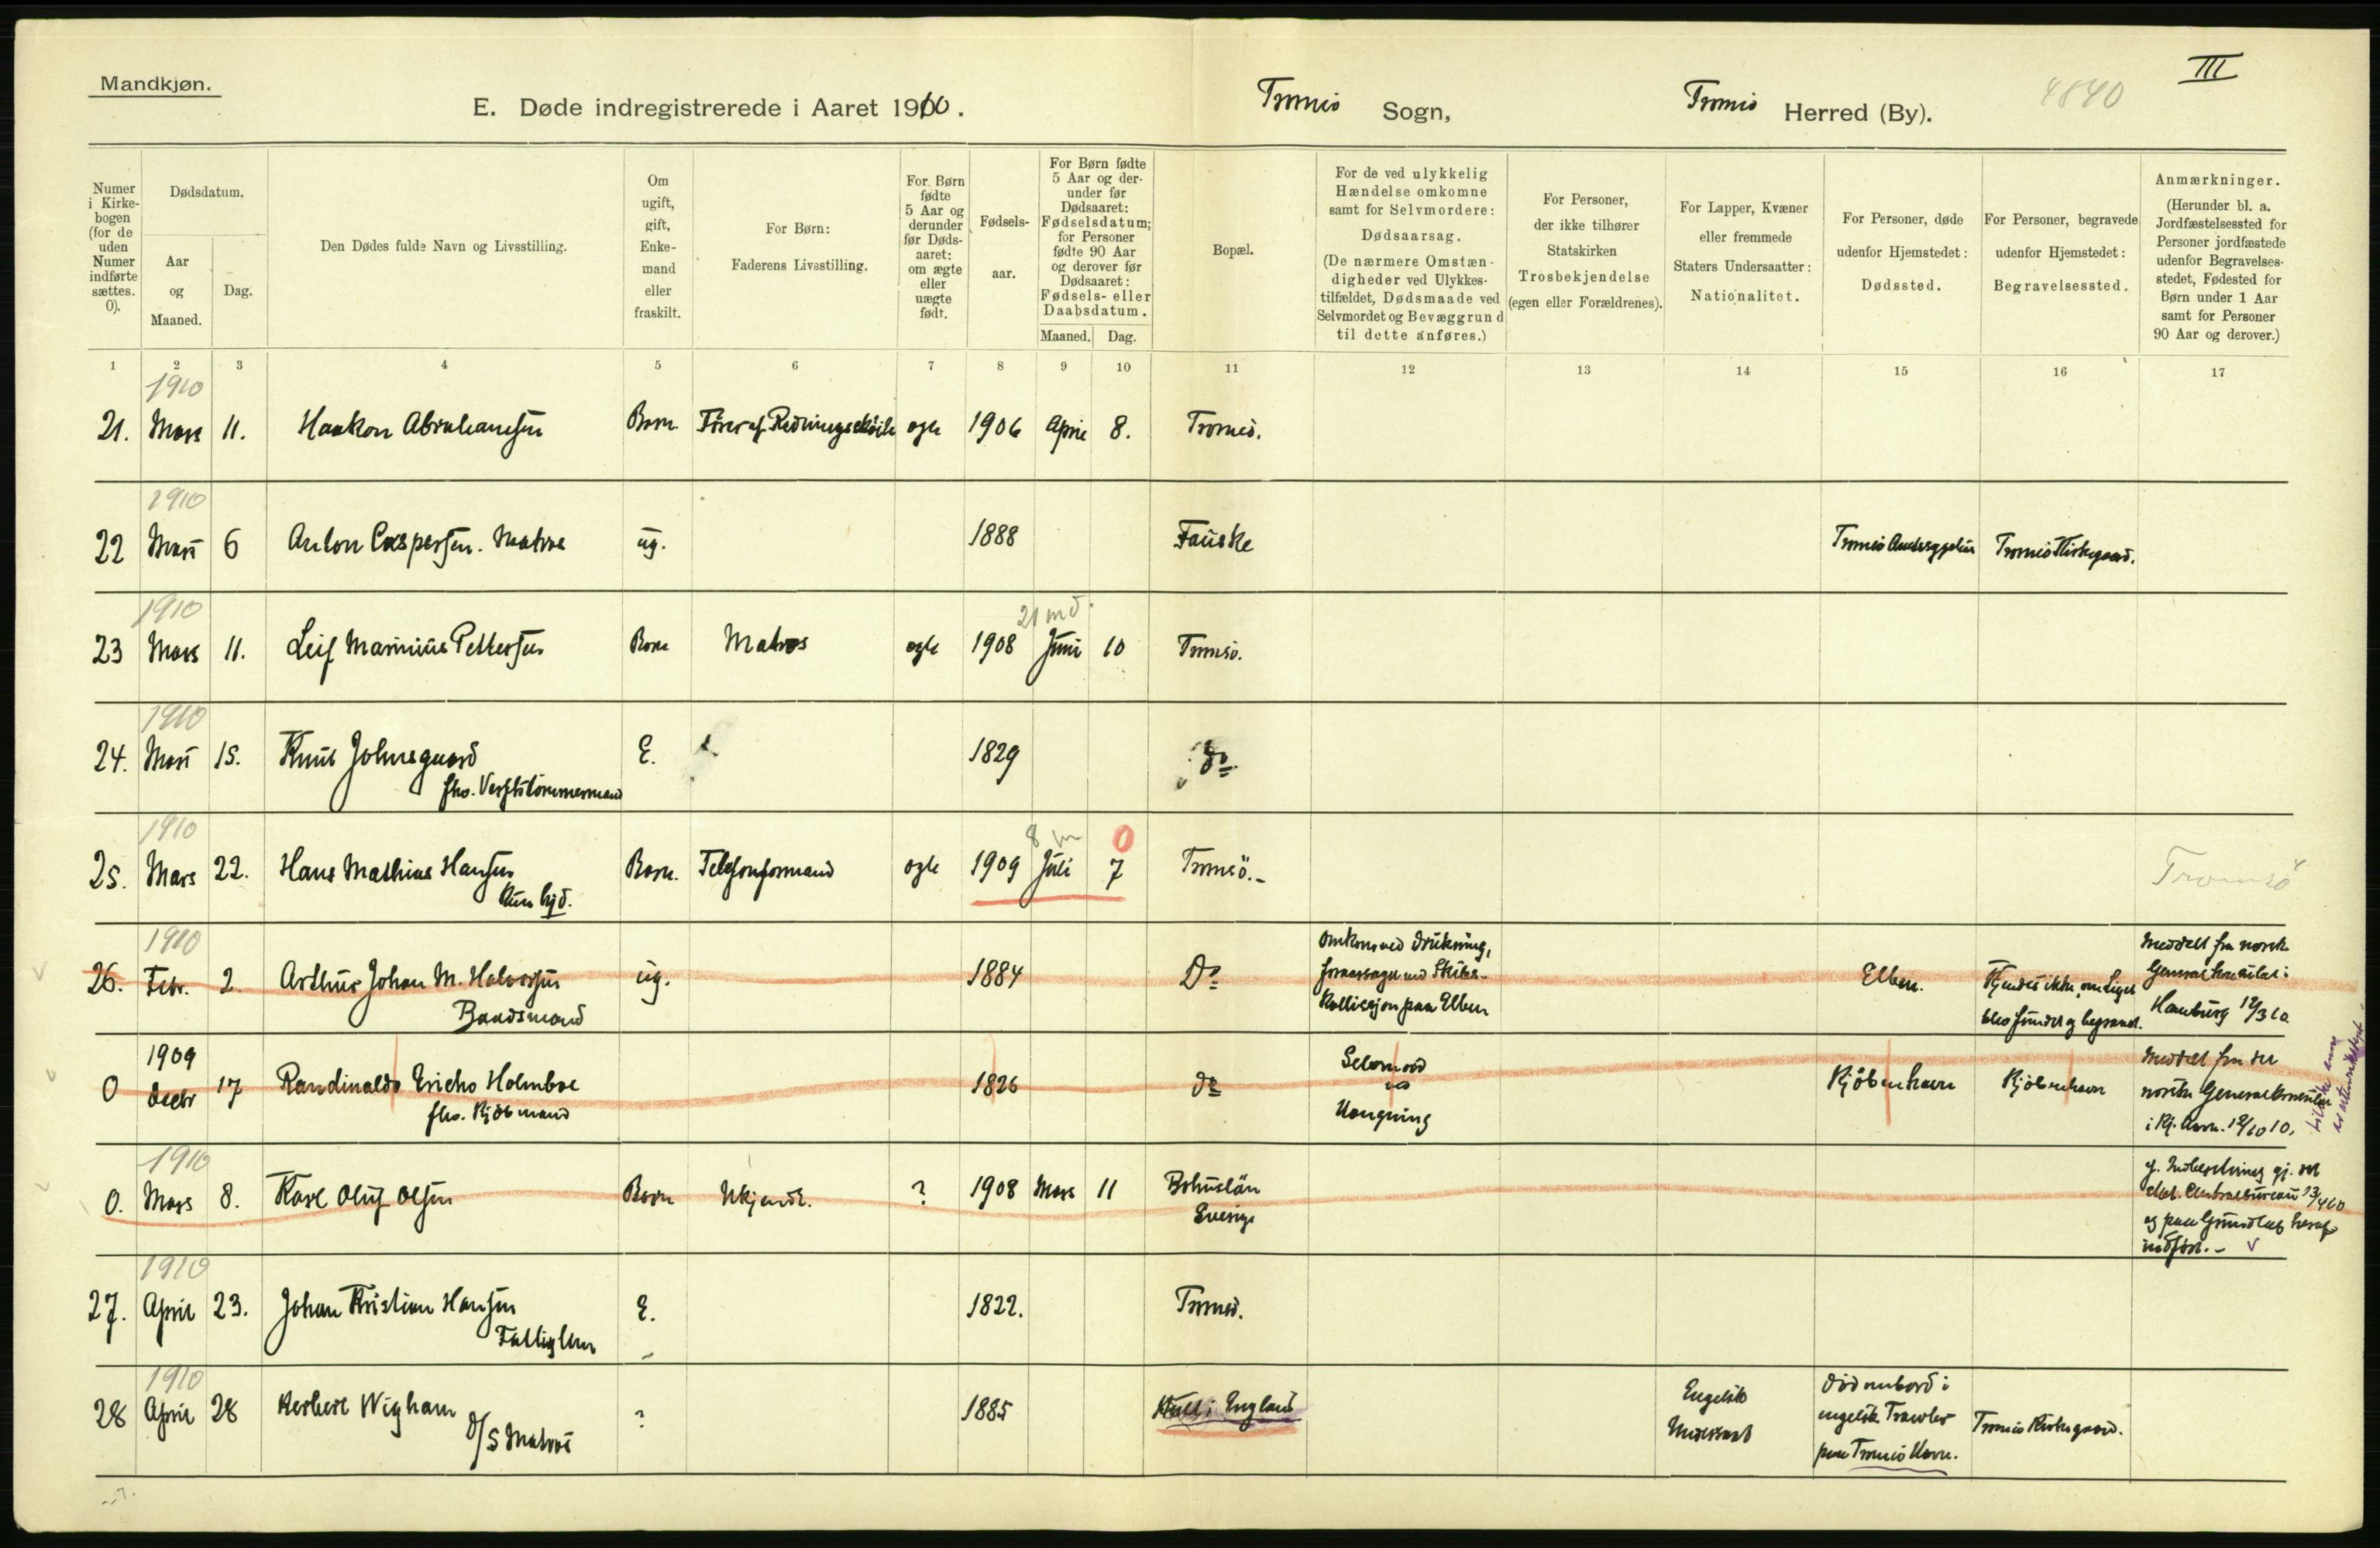 Mandkjøn.
E. Døde indregistrerede i Aaret 1910.
Tromsø Sogn,
Tromsø Herred (By).
4840
III
Numer i Kirkebogen (for de uden Numer indførte sættes. 0).
Dødsdatum.
Aar og Maaned.
Dag.
Den Dødes fulde Navn og Livsstilling.
Om ugift, gift, Enkemand eller fraskilt.
For Børn:
Faderens Livsstilling.
For Børn fødte 5 Aar og derunder før Dødsaaret: om ægte eller uægte født.
Fødselsaar.
For Børn fødte 5 Aar og derunder før Dødsaaret: Fødselsdatum; for Personer fødte 90 Aar og derover før Dødsaaret: Fødsels- eller Daabsdatum.
Maaned. Dag.
Bopæl.
For de ved ulykkelig Hændelse omkomne samt for Selvmordere:
Dødsaarsag.
(De nærmere Omstændigheder ved Ulykkestilfældet, Dødsmaade ved Selvmordet og Bevæggrund til dette anføres.)
For Personer, der ikke tilhører Statskirken
Trosbekjendelse
(egen eller Forældrenes).
For Lapper, Kvæner eller fremmede Staters Undersaatter:
Nationalitet.
For Personer, døde udenfor Hjemstedet:
Dødssted.
For Personer, begravede udenfor Hjemstedet:
Begravelsessted.
Anmærkninger.
(Herunder bl. a. Jordfæstelsessted for Personer jordfæstede udenfor Begravelsesstedet, Fødested for Børn under 1 Aar samt for Personer 90 Aar og derover.)
1 2 3 4 5 6 7 8 9 10 11 12 13 14 15 16 17
1910
21. Mars 11. Haakon Abrahamsen Barn Fører af Redningsskøite ægte 1906 April 8. Tromsø.
1910
22 Mars 6 Anton Caspersen. Matros ug. 1888 Fauske Tromsø Amtssygehus Tromsø Kirkegaard.
1910
21 md.
23 Mars 11. Leif Marinius Pettersen Barn Matros ægte 1908 Juni 10 Tromsø.
1910
24. Mars 15. Knut Johnsgaard E. 1829 do
fhv. Verftstømmermand
1910
8 m 0
25. Mars 22. Hans Mathias Hansen Barn. Telefonformand ægte 1909 Juli 7 Tromsö. Tromsö
kun hjd.
1910
26. Febr. 2. Arthur Johan M. Halvorsen ug. 1884 Do
Baadsmand
Omkom ved drukning,
foraarsaget ved Skibs-
kollission paa Elben
Elben.
Kjendes ikke, om Liget
blev fundet og begravet.
Meddelt fra norsk
Generalkonsulat i
Hamburg 12/3 10
1909
0 Decbr 17 Randinaldo Ericho Holmboe 1826 do
fhv. Kjøbmand
Selvmord
ved
Hængning
Kjöbenhavn Kjöbenhavn
Meddelt fra det
norske Generalkonsulat
i Kj.havn.
1910
0. Mars 8. Karl Oluf Olsen Barn Ukjendt. ? 1908 Mars 11 Bohuslän
Sverige
cf. Indberetning gj. det
stat. Centralbureau 13/4 10
og paa Grundlag heraf
indført. - v
1910
27. April 23. Johan Kristian Hansen E. 1822. Tromsø.
Fattiglem
1910
28 April 28 Herbert Wigham ? 1885 Hull i England
D/S Matros
Engelsk
Undersaat
Død ombord i
engelsk Trawler
paa Tromsø Havn.
Tromsø Kirkegaard.